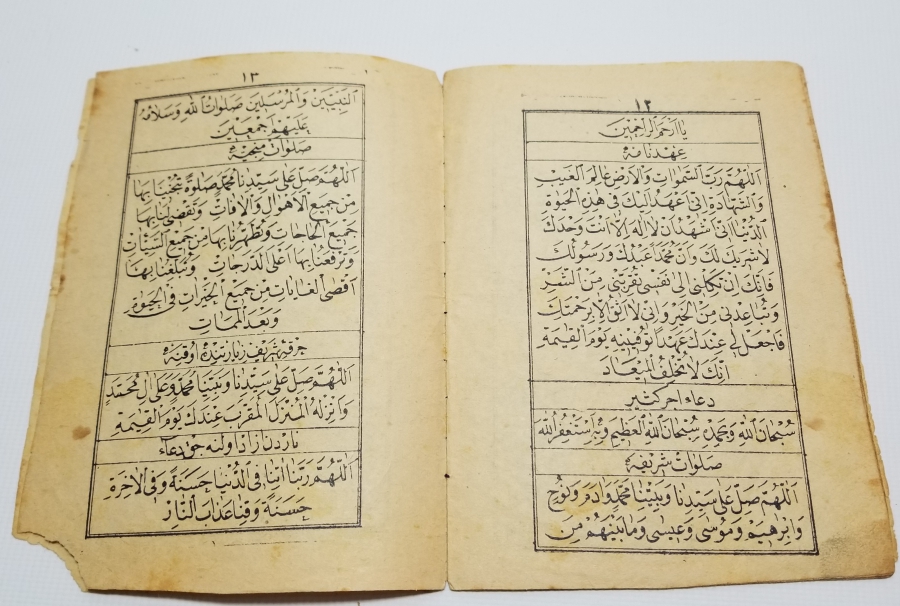 ١٢
يا ارحم الراحمين
عهدنامه
اللهم رب السموات والارض عالم الغيب
والشهادة انى اعهد اليك فى هذه الحيوة
الدنيا انى اشهد ان لا اله الا انت وحدك
لا شريك لك وان محمدا عبدك ورسولك
فانك ان تكلنى الى نفسى تقربنى من الشر
وتباعدنى من الخير وانى لا اثق الا برحمتك
فاجعل لى عندك عهدا توفينيه يوم القيمة
انك لا تخلف الميعاد
دعاء اجر كثير
سبحان الله وبحمده سبحان الله العظيم وبه استغفر الله
صلوات شريفه
اللهم صل على سيدنا ونبينا محمد وادم ونوح
وابرهيم وموسى وعيسى وما بينهم من
١٣
النبيين والمرسلين صلوات الله وسلامه
عليهم اجمعين
صلوات منجيه
اللهم صل على سيدنا محمد صلوة تنجينا بها
من جميع الاهوال والافات وتقضى لنا بها
جميع الحاجات وتطهرنا بها من جميع السيئات
وترفعنا بها اعلى الدرجات وتبلغنا بها
اقصى الغايات من جميع الخيرات فى الحيوة
وبعد الممات
خرقۀ شريف زيارتنده اوقنه
اللهم صل على سيدنا ونبينا محمد وعلى ال محمد
وانزله المنزل المقرب عندك يوم القيمة
ناردن ازاد اولنه جق دعاء
اللهم ربنا اتنا فى الدنيا حسنة وفى الاخرة
حسنة وقنا عذاب النار